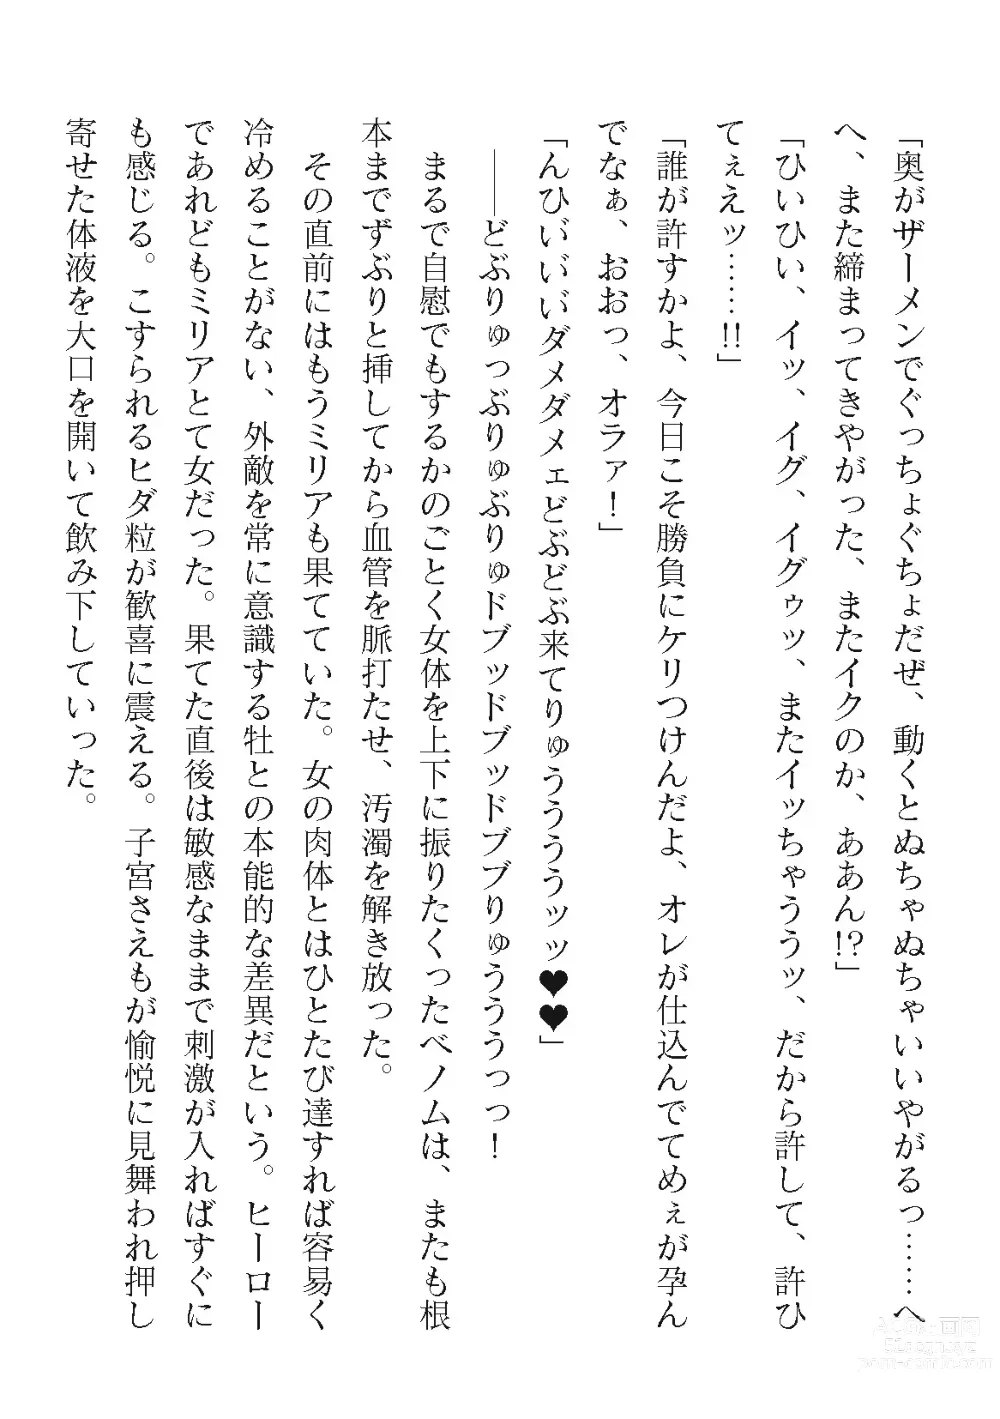 「奥がザーメンでぐっちょぐちょだぜ、動くとぬちゃぬちゃいいやがるっ……へ
へ、また締まってきやがった、またイクのか、ああん!?」
「ひいひい、イッ、イグ、イグゥッ、またイッちゃううッ、だから許して、許ひ
てぇえッ……!!」
「誰が許すかよ、今日こそ勝負にケリつけんだよ、オレが仕込んでてめぇが孕ん
でなぁ、おおっ、オラァ！」
「んひいいいダメダメェどぶどぶ来てりゅううううッッ♥♥」
――どぶりゅっぶりゅぶりゅドブッドブッドブブりゅうううっっ！
まるで自慰でもするかのごとく女体を上下に振りたくったベノムは、またも根
本までずぶりと挿してから血管を脈打たせ、汚濁を解き放った。
その直前にはもうミリアも果てていた。女の肉体とはひとたび達すれば容易く
冷めることがない、外敵を常に意識する牡との本能的な差異だという。ヒーロー
であれどもミリアとて女だった。果てた直後は敏感なままで刺激が入ればすぐに
も感じる。こすられるヒダ粒が歓喜に震える。子宮さえもが愉悦に見舞われ押し
寄せた体液を大口を開いて飲み下していった。